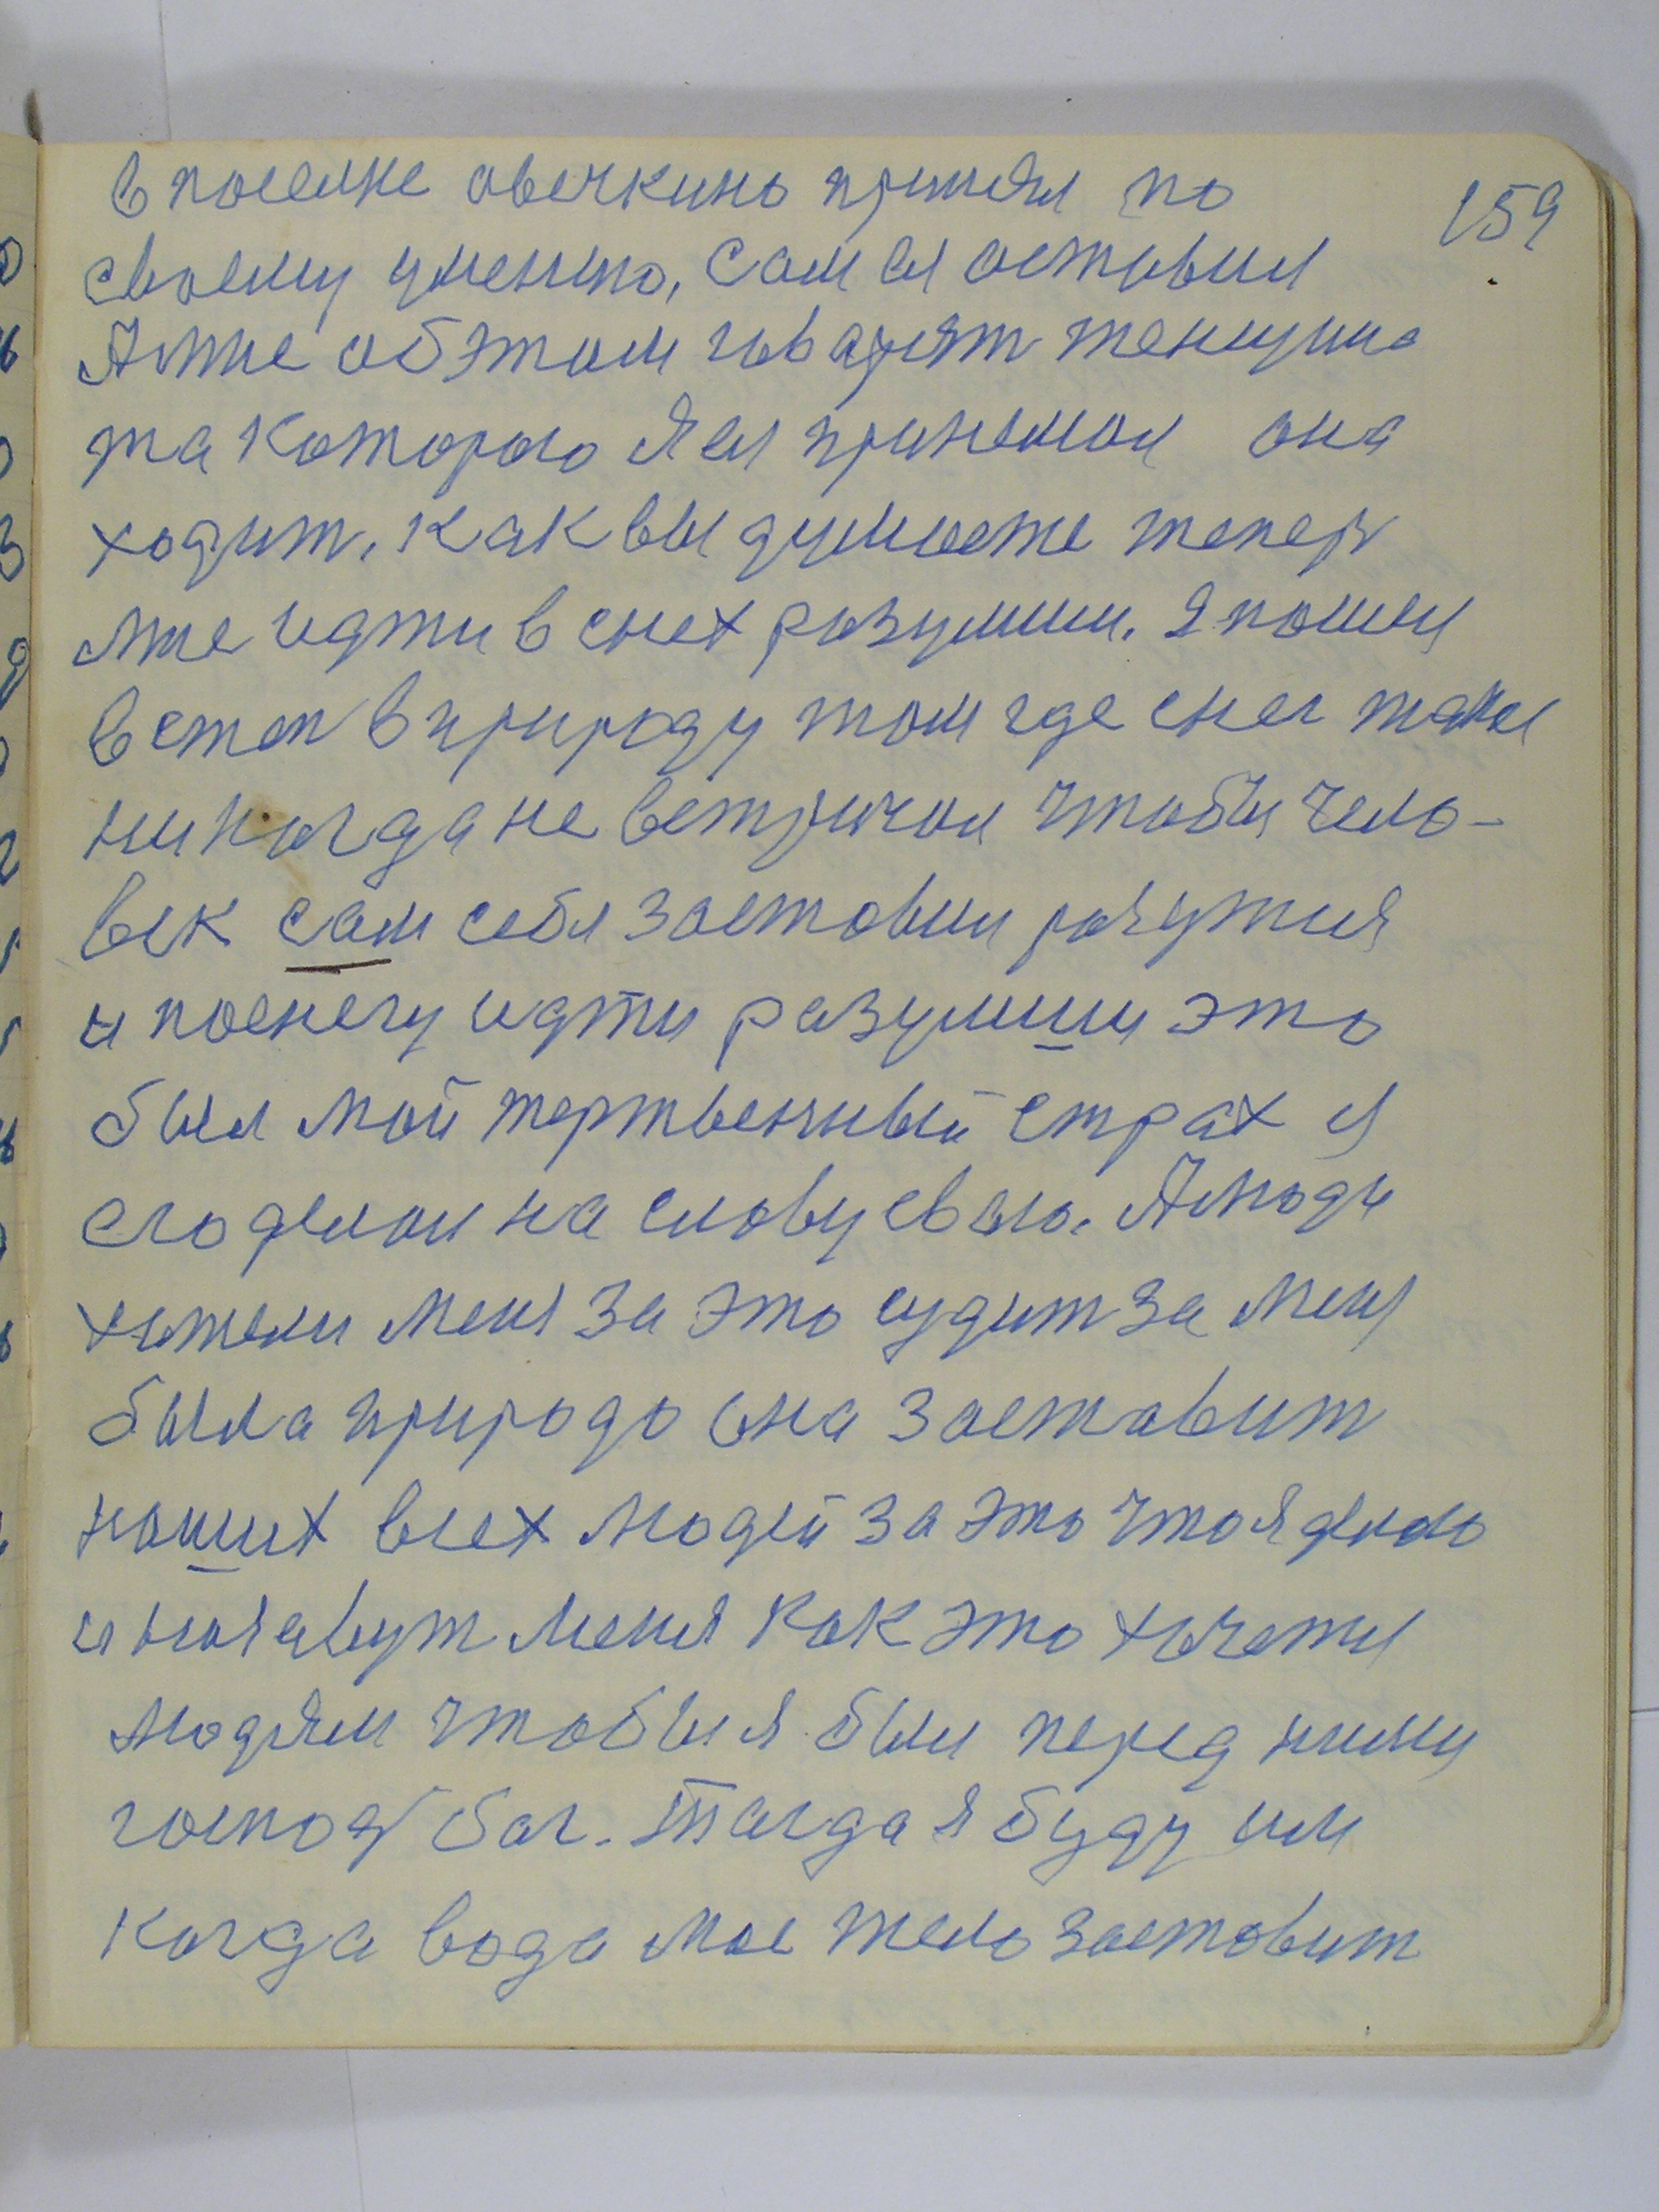 в поселке овечкино принял по 159
своему умению, сам ея оставил
А мне об этом гаварят женщина
та которою я ея принемал она
ходит, как вы думаете теперь
мне идти в снех разумши. Я пошел
в степ в природу там где снег
никагда не встричал чтобы чело-
век сам себя заставил разутия
и по снегу идти разумши это
был мой жертвенный страх я
его делал на славу свою. А люди
хотели меня за это судит за меня
была природа она заставит
наших всех людей за это что я делаю
и назавут меня как это хочетя
людям чтобы я был перед ними
господ бог. Тагда я буду им
когда вода мое тело заставит